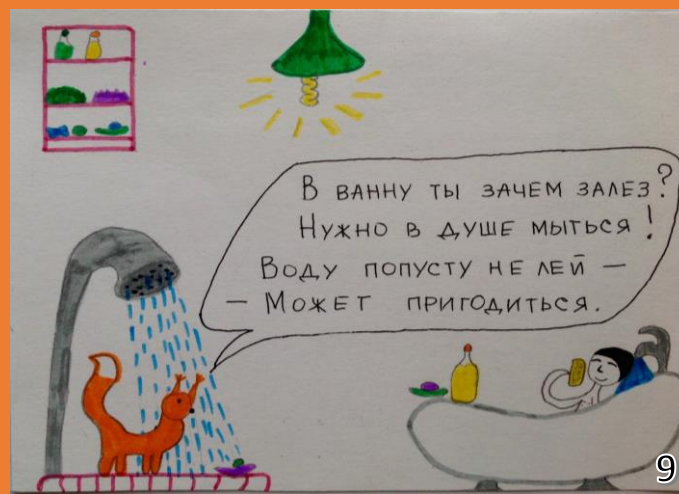 В ВАННУ ТЫ ЗАЧЕМ ЗАЛЕЗ?
НУЖНО В ДУШЕ МЫТЬСЯ!
ВОДУ ПОПУСТУ НЕ ЛЕЙ –
– МОЖЕТ ПРИГОДИТЬСЯ.
9